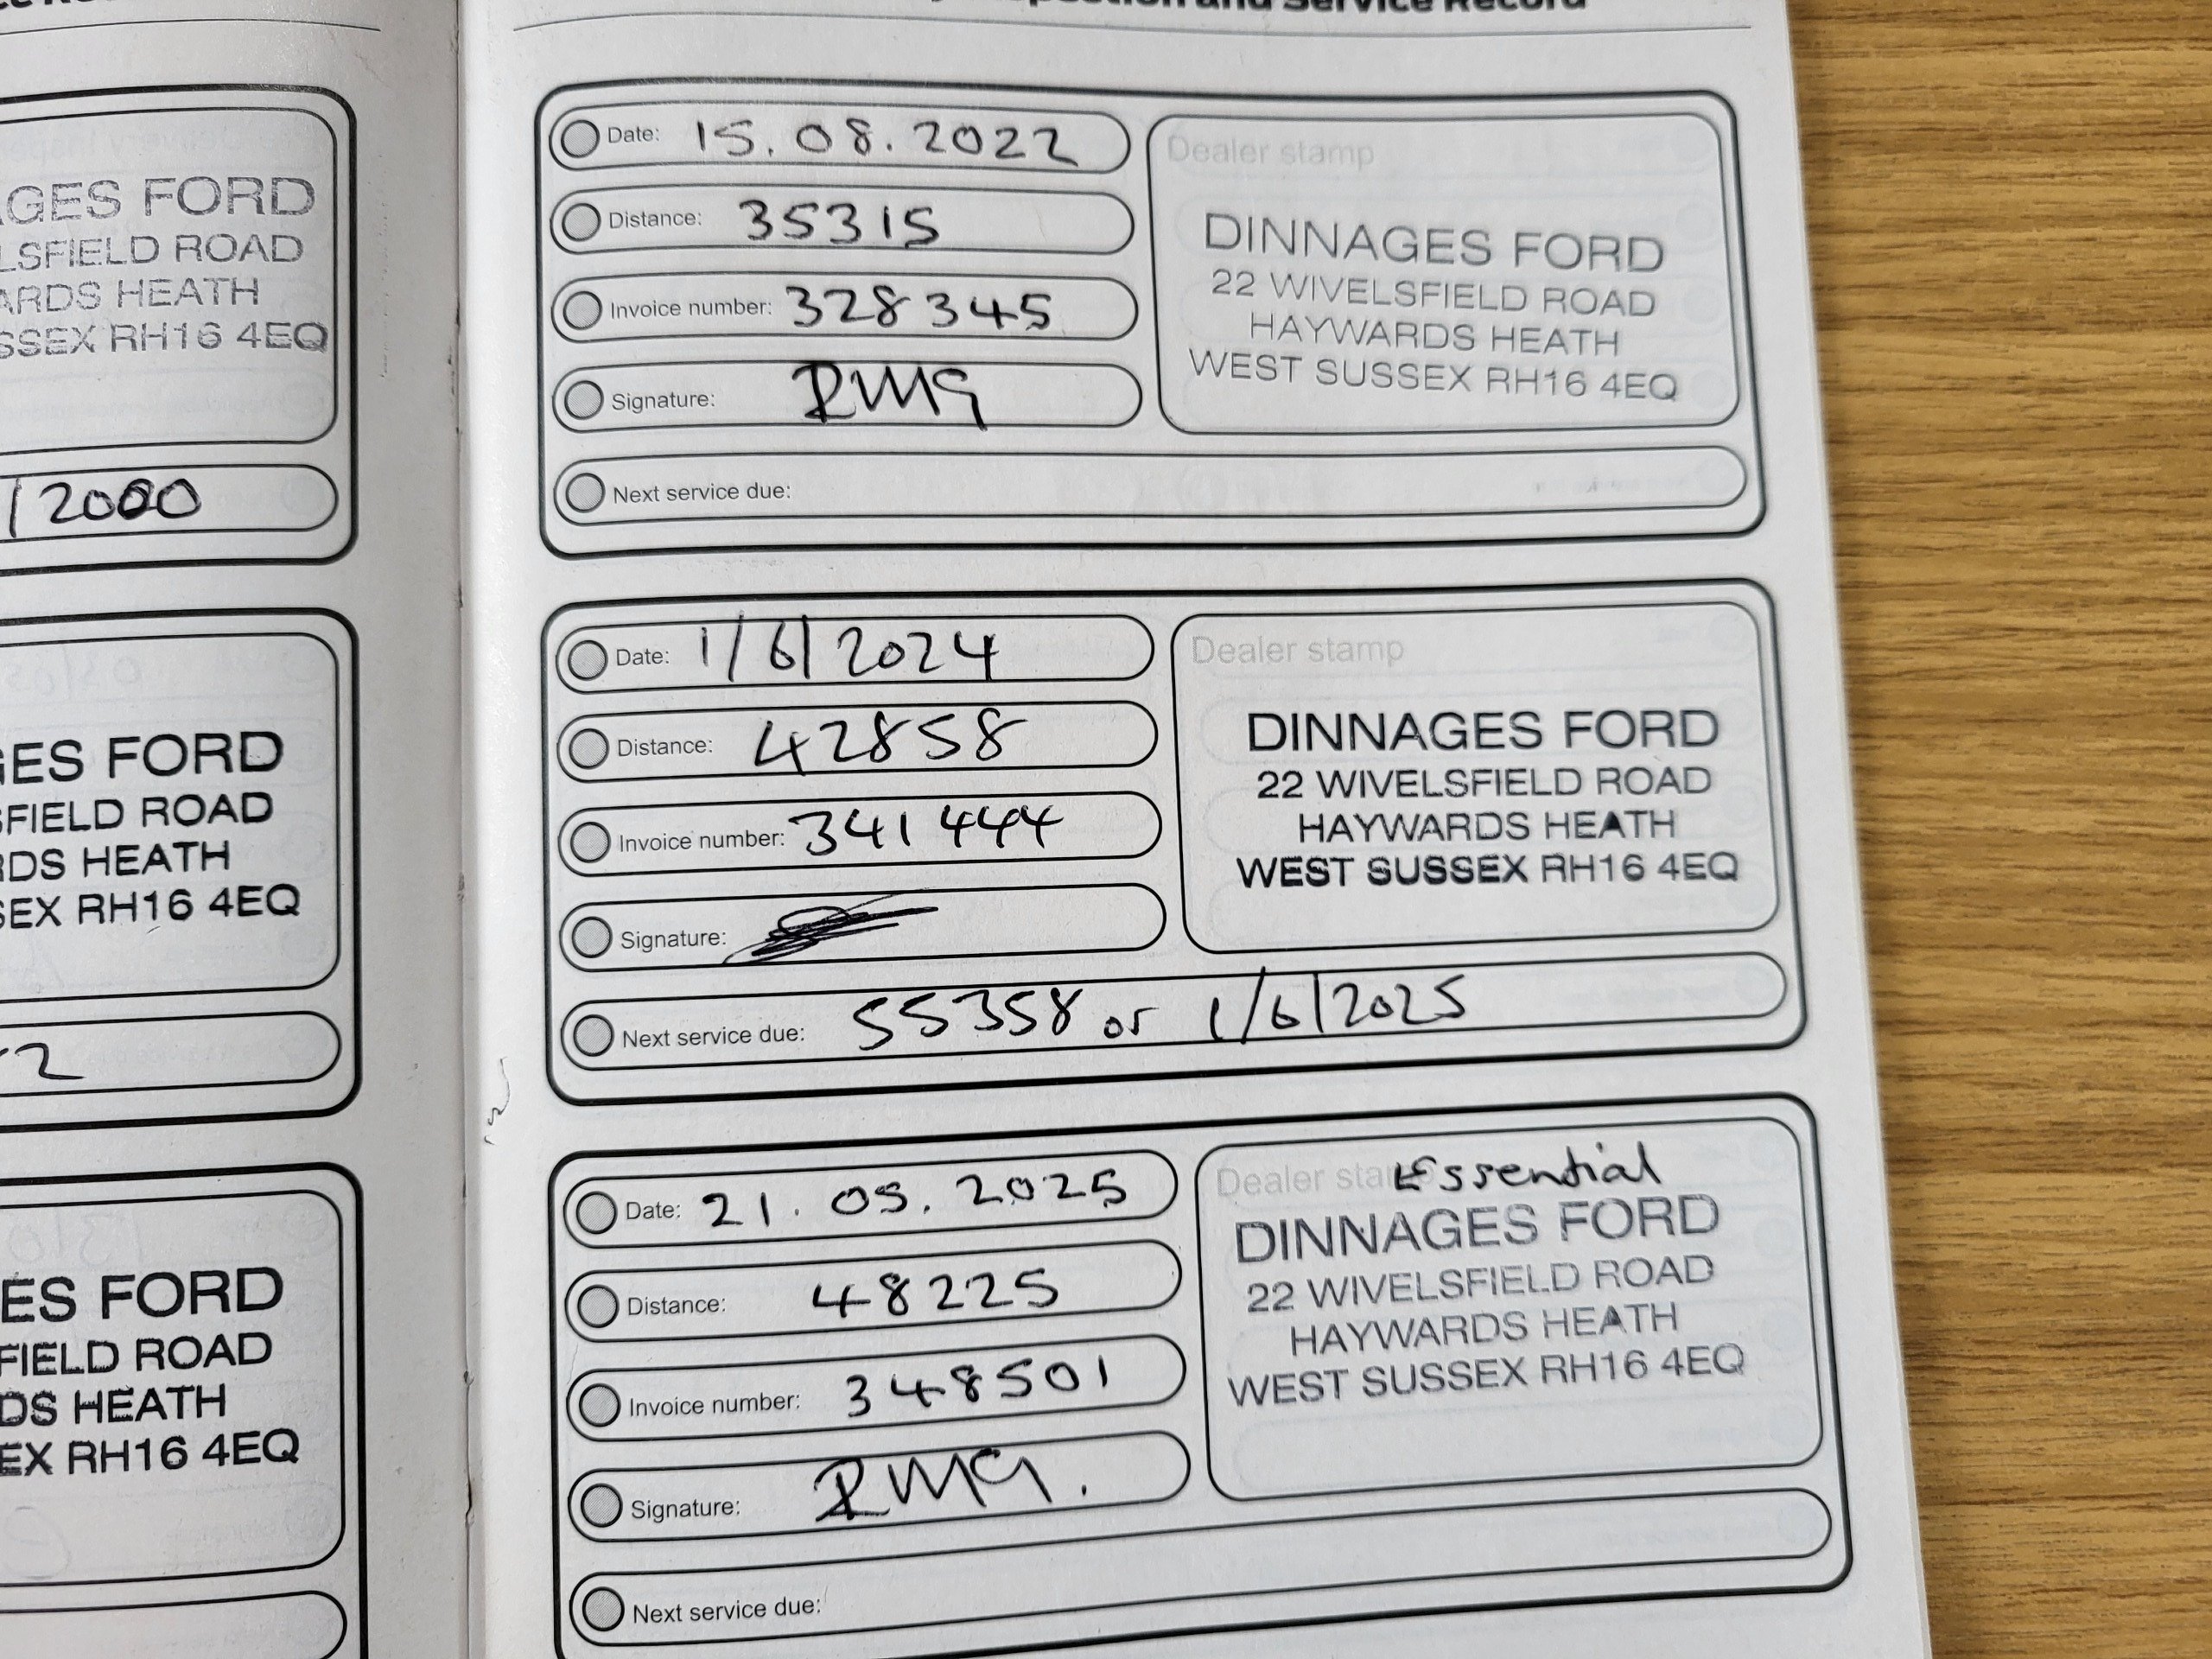 Inspection and Service Record
AGES FORD
LSFIELD ROAD
ARDS HEATH
SSEX RH16 4EQ
/2000
GES FORD
SFIELD ROAD
RDS HEATH
SEX RH16 4EQ
2
ES FORD
FIELD ROAD
DS HEATH
EX RH16 4EQ
Date: 15.08.2022
Distance: 35315
Invoice number: 328345
Signature:
Next service due:
Dealer stamp
DINNAGES FORD
22 WIVELSFIELD ROAD
HAYWARDS HEATH
WEST SUSSEX RH16 4EQ
Date: 1/6/2024
Distance: 42858
Invoice number: 341444
Signature:
Next service due: 55358 or 1/6/2025
Dealer stamp
DINNAGES FORD
22 WIVELSFIELD ROAD
HAYWARDS HEATH
WEST SUSSEX RH16 4EQ
Date: 21.05.2025
Distance: 48225
Invoice number: 348501
Signature:
Next service due:
Dealer stamp Essential
DINNAGES FORD
22 WIVELSFIELD ROAD
HAYWARDS HEATH
WEST SUSSEX RH16 4EQ